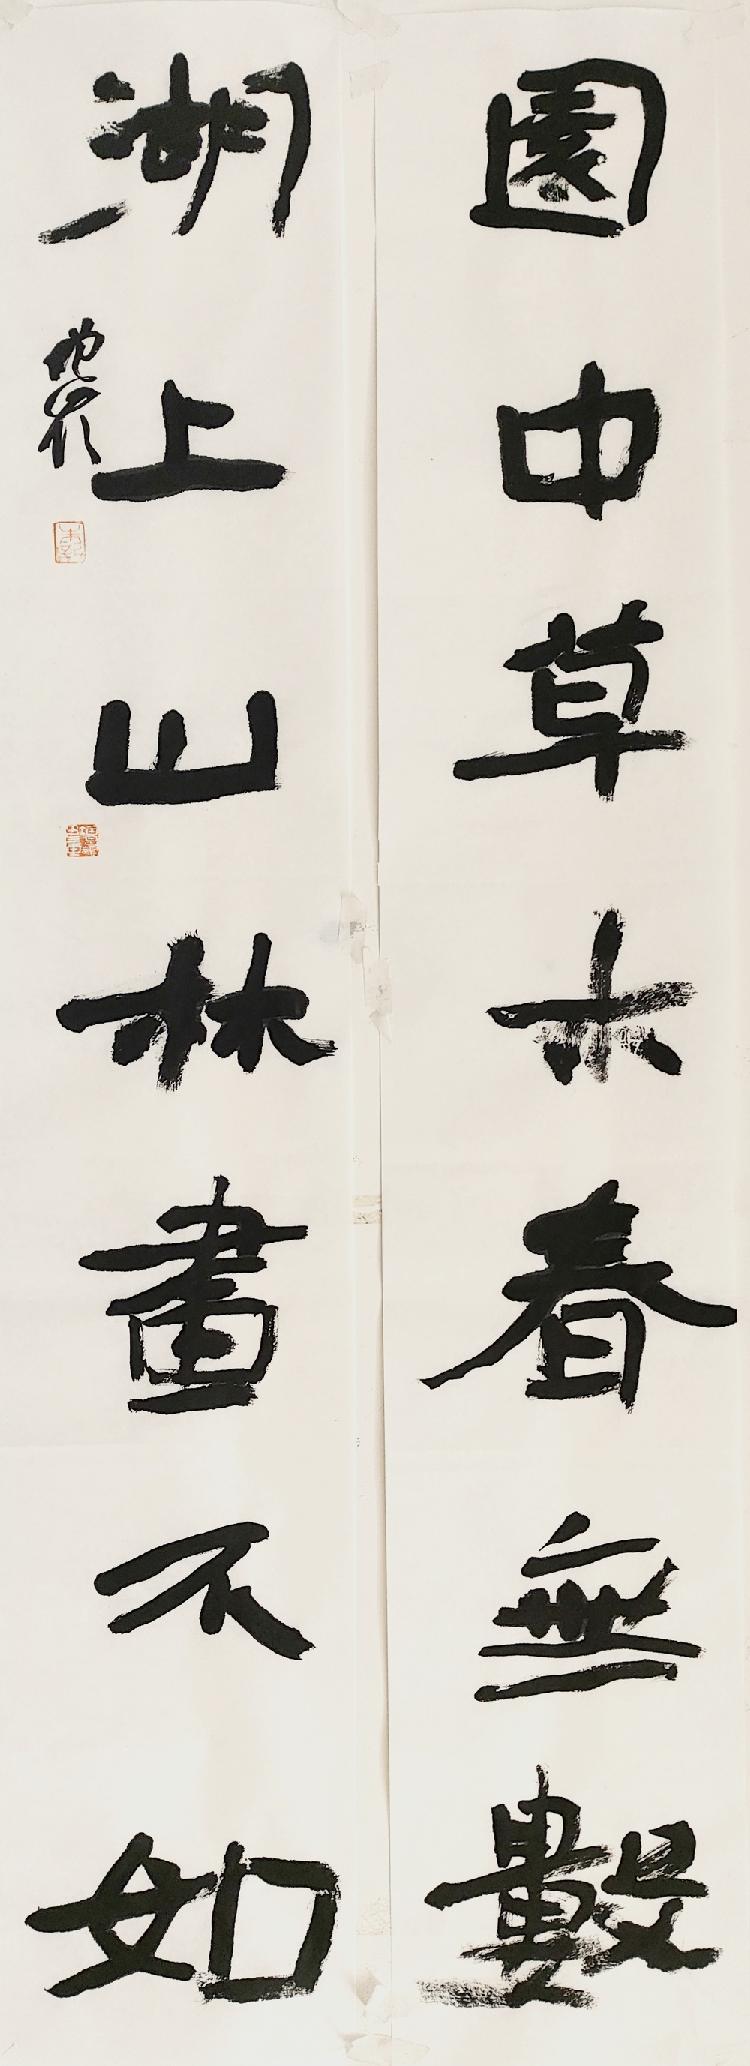 園中草木春無數
湖上山林畫不如